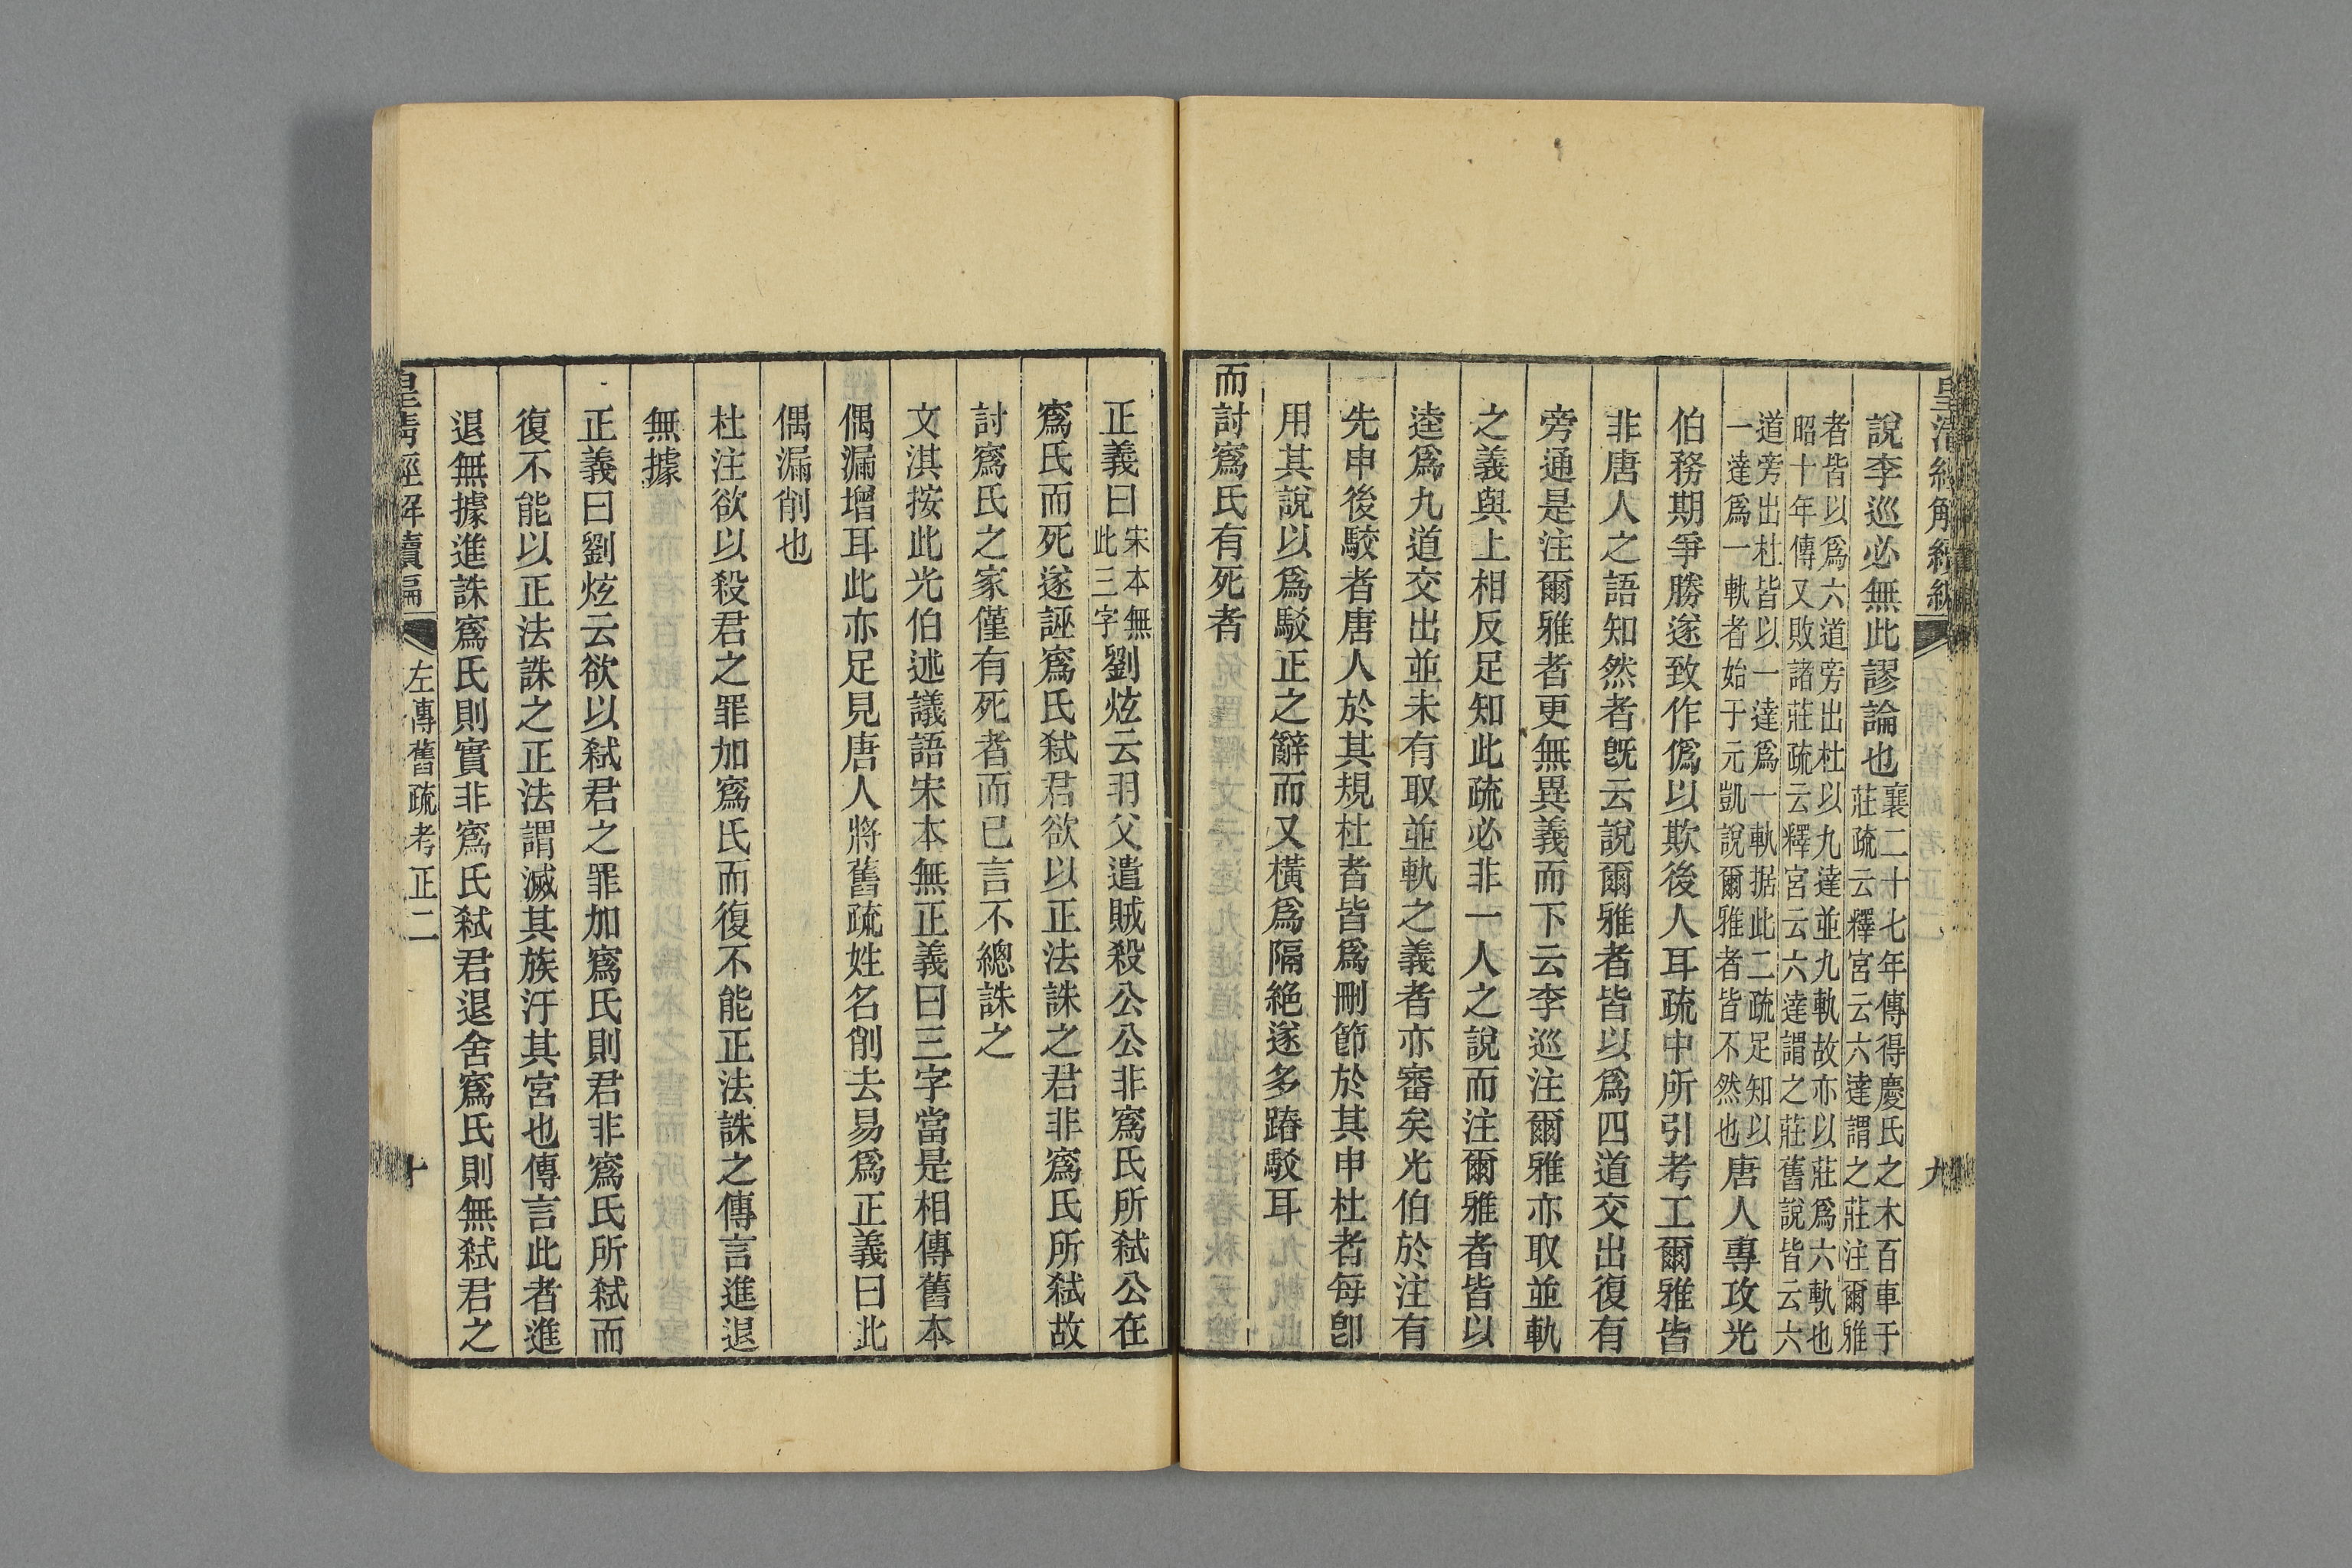 皇清經解續編
九
說李巡必無此謬論也襄二十七年傳得慶氏之木百車于
莊疏云釋宮云六達謂之莊注爾雅
者皆以爲六道旁出杜以九達並九軌故亦以莊爲六軌也
昭十年傳又敗諸莊疏云釋宮云六達謂之莊舊說皆云六
道旁出杜皆以一達爲一軌据此二疏足知以
一達爲一軌者始于元凱說爾雅者皆不然也唐人專攻光
伯務期爭勝遂致作僞以欺後人耳疏中所引考工爾雅皆
非唐人之語知然者既云說爾雅者皆以爲四道交出復有
旁通是注爾雅者更無異義而下云李巡注爾雅亦取並軌
之義與上相反足知此疏必非一人之說而注爾雅者皆以
逵爲九道交出並未有取並軌之義者亦審矣光伯於注有
先申後駮者唐人於其規杜者皆爲刪節於其申杜者每卽
用其說以爲駮正之辭而又橫爲隔絶遂多踳駮耳
而討寪氏有死者
正義曰宋本無
此三字劉炫云羽父遣賊殺公公非寪氏所弒公在
寪氏而死遂誣寪氏弒君欲以正法誅之君非寪氏所弒故
討寪氏之家僅有死者而已言不總誅之
文淇按此光伯述議語宋本無正義曰三字當是相傳舊本
偶漏增耳此亦足見唐人將舊疏姓名削去易爲正義曰此
偶漏削也
杜注欲以殺君之罪加寪氏而復不能正法誅之傳言進退
無據
正義曰劉炫云欲以弒君之罪加寪氏則君非寪氏所弒而
復不能以正法誅之正法謂滅其族汙其宮也傳言此者進
退無據進誅寪氏則實非寪氏弒君退舍寪氏則無弒君之
皇清經解續編
左傳舊疏考正二
十